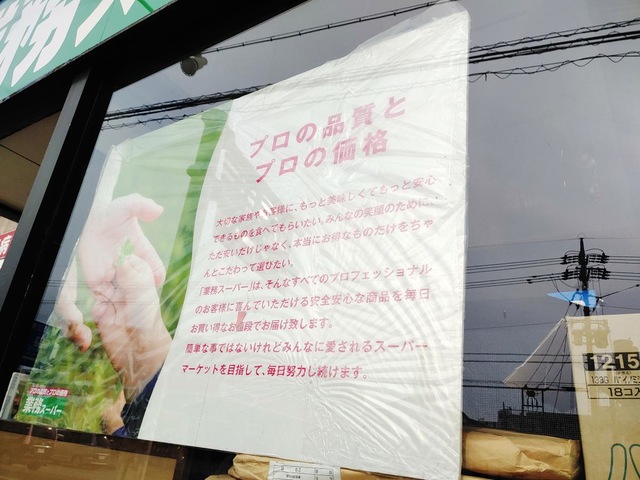 プロの品質と
プロの価格
大切な家族やお客様に、もっと美味しくてもっと安心
できるものを食べてもらいたい。みんなの笑顔のために、
ただ安いだけじゃなく、本当にお得なものだけをちゃ
んとこだわって選びたい。
「業務スーパー」は、そんなすべてのプロフェッショナル
のお客様に喜んでいただける安全安心な商品を毎日
お買い得なお値段でお届け致します。
簡単な事ではないけれどみんなに愛されるスーパー
マーケットを目指して、毎日努力し続けます。
プロの品質とプロの価格
業務スーパー
12-15
18コ入